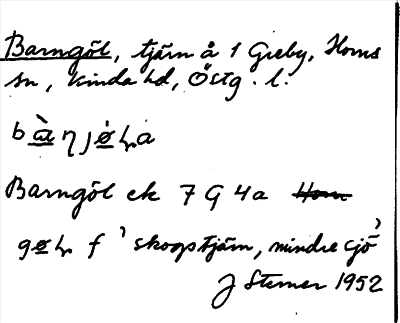 Barngöl, tjärn å 1 Greby, Horns
sn, Kinda hd, Östg. l.
Barngöl ek 7 G 4a
f 'skogstjärn, mindre sjö'
J Sterner 1952